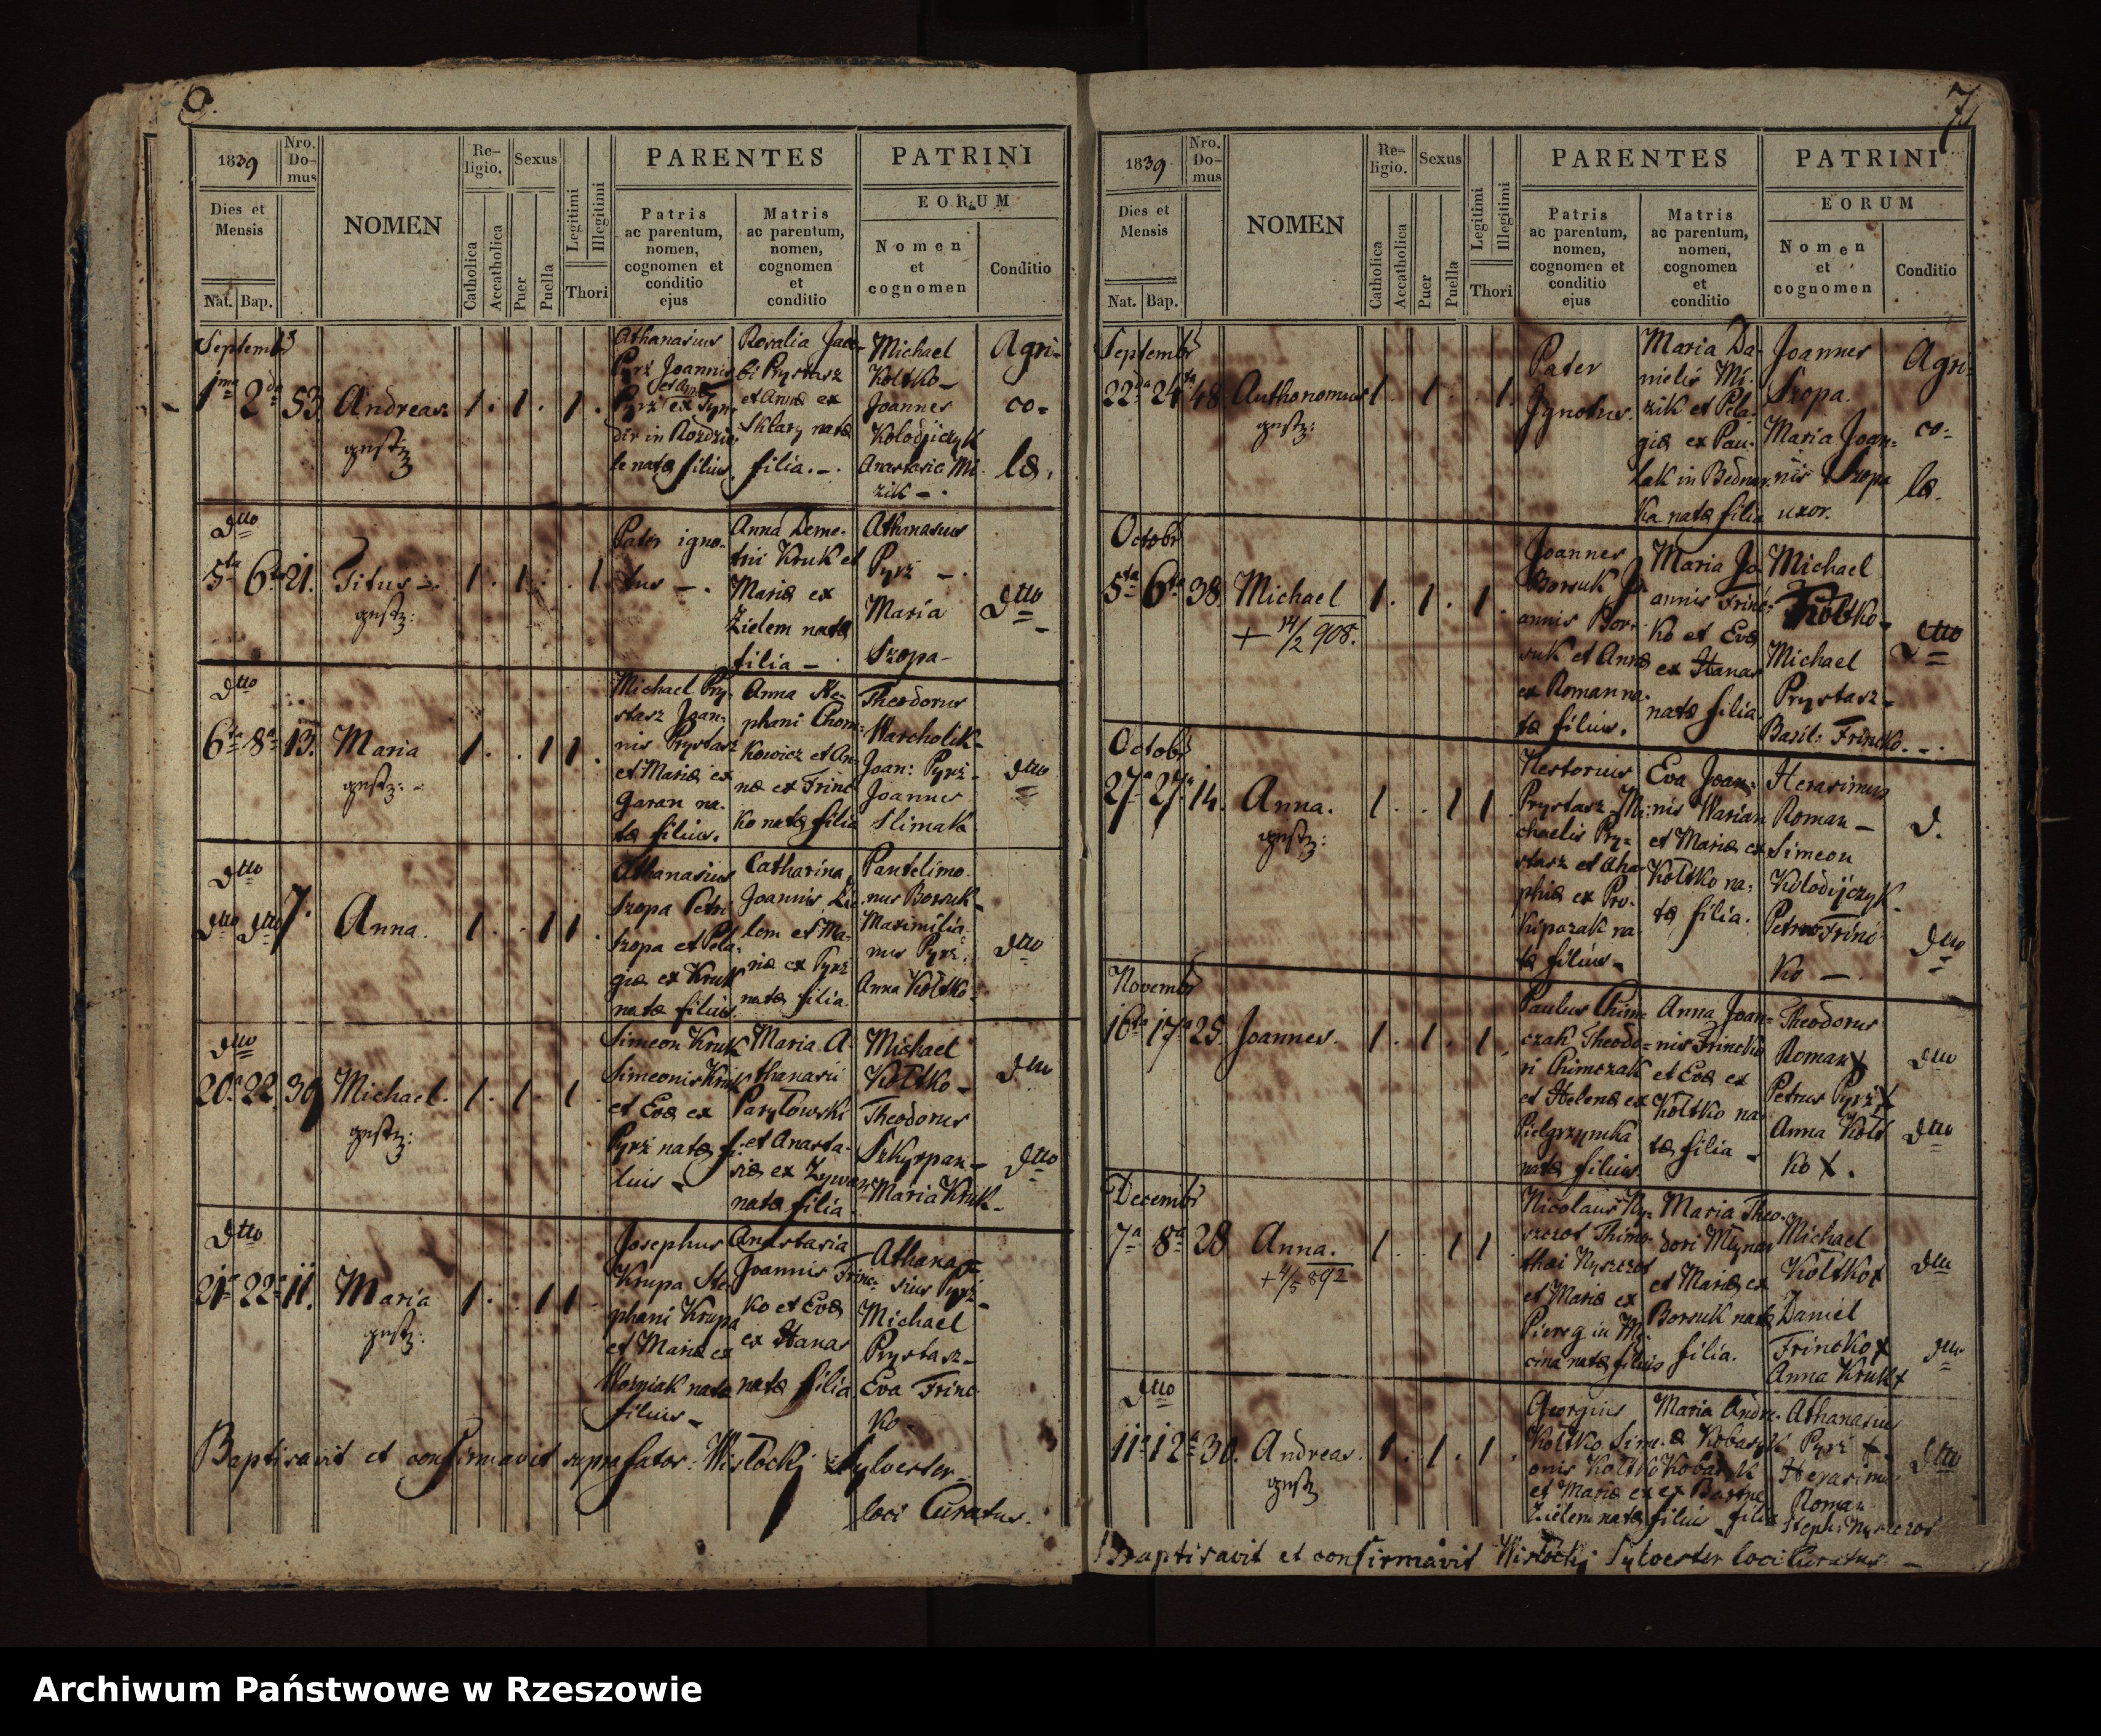 1839
Nro. Domus
NOMEN
Religio.
Sexus
Legitimi
Illegitimi
PARENTES
PATRINI
Dies et Mensis
Catholica
Accatholica
Puer
Puella
Thori
Patris ac parentum, nomen, cognomen et conditio ejus
Matris ac parentum, nomen, cognomen et conditio
EORUM
Nomen et cognomen
Conditio
Nat. Bap.
Septemb
1ma 2da 53. Andreas. 1. 1. 1.
Athanasius
Pyrz Joannis
Pyrz ex Tyn-
dir in Rozdzie-
le natæ filius.
Rosalia Jaco-
bi Prystasz
et Annæ ex
Sklary natæ
filia.
Michael
Koltko
Joannes
Kolodijczyk
Anastasia Mi-
zik
Agri-
co-
læ.
Dtto
5ta 6ta 21. Titus 1. 1. 1.
Pater igno-
tus
Anna Deme-
trii Kruk et
Mariæ ex
Zielem natæ
filia
Athanasius
Pyrz
Maria
Szopa
Dtto
Dtto
6ta 8a 13. Maria 1. 1 1.
Michael Pry-
stasz Joan-
nis Prystasz
et Mariæ ex
Garan na-
tæ filius.
Anna Ste-
phani Chom-
kowicz et An-
næ ex Frinc-
ko natæ filia
Theodorus
Warcholik
Joan: Pyrz
Joannes
Slimak
Dtto
Dtto
Dtto Dtto 7. Anna. 1. 1 1.
Athanasius
Szopa Petri
Szopa et Pela-
giæ ex Kruk
natæ filius.
Catharina
Joannis Zie-
lem et Ma-
riæ ex Pyrz
natæ filia.
Pantelimo-
nus Borsuk
Maximilia-
nus Pyrz
Anna Koltko
Dtto
Dtto
20a 22. 39 Michael. 1. 1. 1
Simeon Kruk
Simeonis Kruk
et Evæ ex
Pyrz natæ fi-
lius
Maria A-
thanasii
Parylowski
et Anasta-
siæ ex Zywar
natæ filia.
Michael
Koltko
Theodorus
Szkyrpan
Maria Kruk
Dtto
Dtto
Dtto
21a 22a 11. Maria 1. 1 1.
Josephus
Krupa Ste-
phani Krupa
et Mariæ ex
Wozniak natæ
filius
Anastasia
Joannis Frinc-
ko et Evæ
ex Hanas
natæ filia
Athana-
sius Pyrz
Michael
Prystasz
Eva Frinc-
ko
Baptisavit et confirmavit suprafatus Wislocki Sylvester
loci Curatus.
7
1839
Nro. Domus
NOMEN
Religio.
Sexus
Legitimi
Illegitimi
PARENTES
PATRINI
Dies et Mensis
Catholica
Accatholica
Puer
Puella
Thori
Patris ac parentum, nomen, cognomen et conditio ejus
Matris ac parentum, nomen, cognomen et conditio
EORUM
Nomen et cognomen
Conditio
Nat. Bap.
Septemb
22da 24ta 48. Authonomus 1. 1. 1.
Pater
Ignotus.
Maria Da-
nielis Mi-
zik et Pela-
giæ ex Pau-
lak in Bednar-
ka natæ filia
Joannes
Szopa.
Maria Joan-
nis Szopa
uxor.
Agri-
co-
læ.
Octobr
5ta 6ta 38. Michael 1. 1. 1.
+ 14/2 908.
Joannes
Borsuk Jo-
annis Bor-
suk et Annæ
ex Roman na-
tæ filius.
Maria Jo-
annis Frinc-
ko et Evæ
ex Hanas
natæ filia
Michael
Koltko
Michael
Prystasz
Basil: Frincko.
Dtto
Octobr
27a 27a 14. Anna. 1. 1 1.
Nestorius
Prystasz Mi-
chaelis Pry-
stasz et Aha-
phiæ ex Pro-
kipczak na-
tæ filius
Eva Joan-
nis Warian
et Mariæ ex
Koltko na-
tæ filia.
Herasimus
Roman
Simeon
Kolodijczyk
Petrus Frinc-
ko
D.
Dtto
Novembr
16ta 17a 25. Joannes. 1. 1. 1.
Paulus Chim-
czak Theodo-
ri Chimczak
et Helenæ ex
Pielgrzymka
natæ filius
Anna Joan-
nis Frincko
et Evæ ex
Koltko na-
tæ filia
Theodorus
Roman X
Petrus Pyrz X
Anna Kolt-
ko X.
Dtto
Dtto
Decembr
7a 8a 28 Anna. 1. 1 1
+ 4/5 892
Nicolaus Ny-
szczot Thimo-
thei Nyszczot
et Mariæ ex
Piereg in My-
natæ filius
Maria Theo-
dori Mlynar
et Mariæ ex
Borsuk natæ
filia.
Michael
Koltko x
Daniel
Frincko x
Anna Kruk x
Dtto
Dtto
Dtto
11a 12a 30. Andreas. 1. 1. 1.
Georgius
Koltko Sime-
onis Koltko
et Mariæ ex
Zielem natæ filius
Maria Andre-
æ Kobasyk
Kobasyk
filia
Athanasius
Pyrz x.
Herasim
Roman
Steph: Nyszczot
Dtto
Baptisavit et confirmavit Wislocki Sylvester loci Curatus
Archiwum Państwowe w Rzeszowie